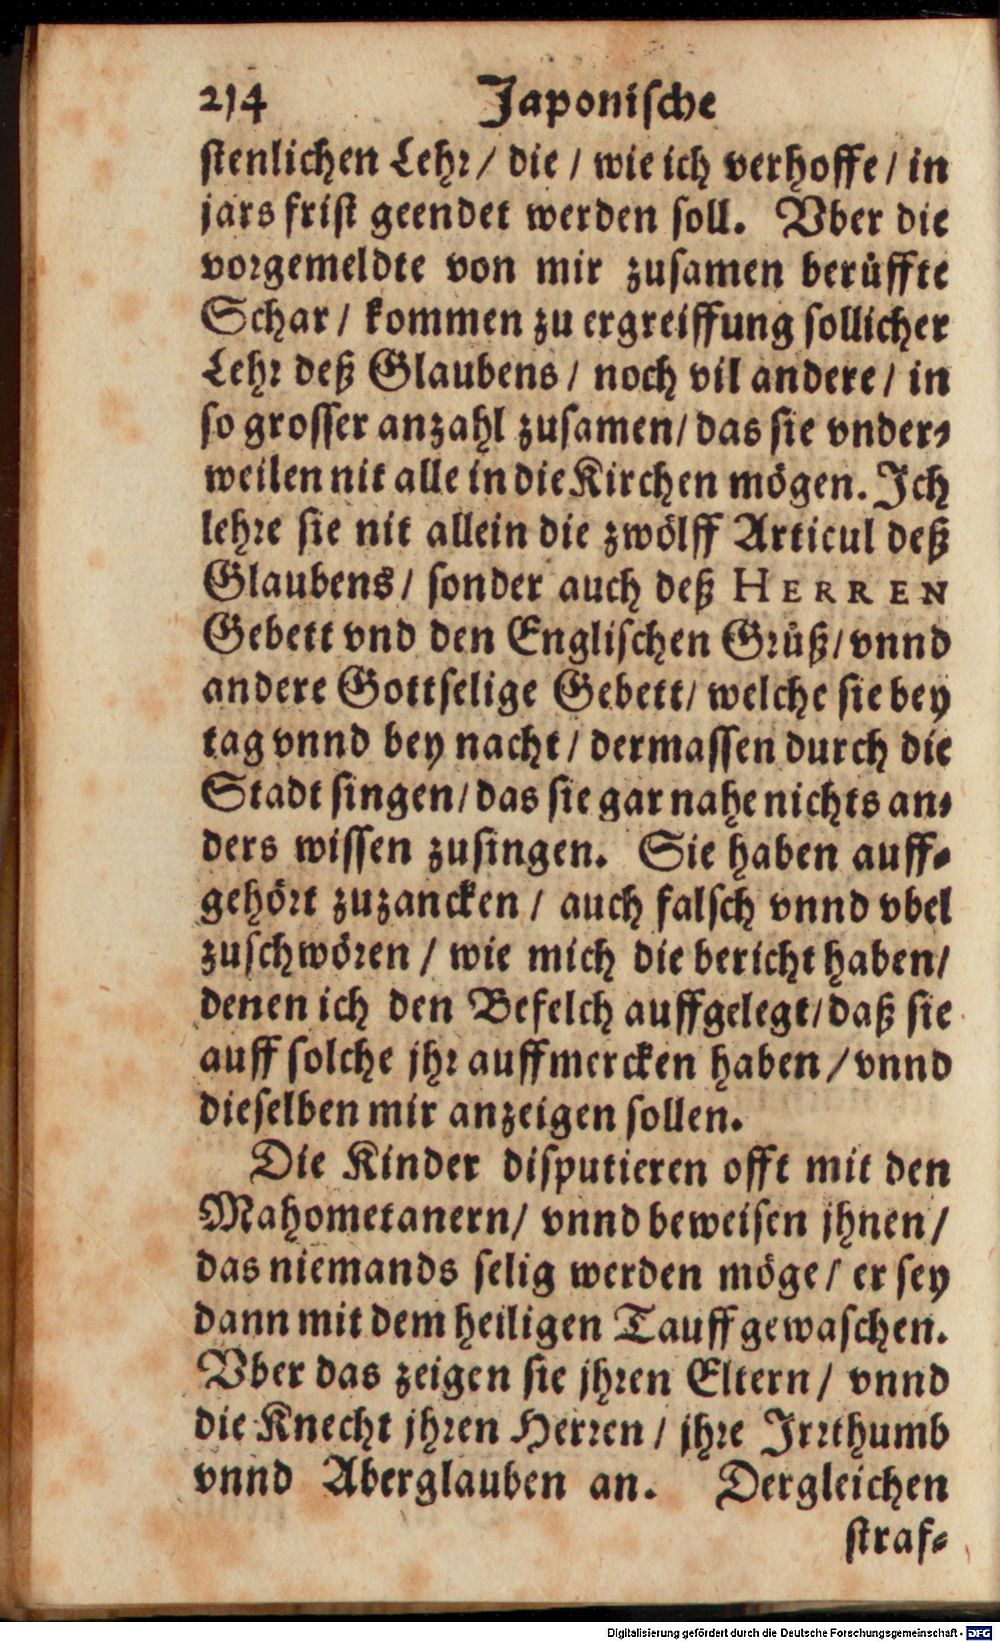 214 Japonische
stenlichen Lehr/ die / wie ich verhoffe / in
jars frist geendet werden soll. Vber die
vorgemeldte von mir zusamen berüffte
Schar / kommen zu ergreiffung sollicher
Lehr deß Glaubens / noch vil andere / in
so grosser anzahl zusamen/ das sie vnder-
weilen nit alle in die Kirchen mögen. Ich
lehre sie nit allein die zwölff Articul deß
Glaubens / sonder auch deß HERREN
Gebett vnd den Englischen Grüß/ vnnd
andere Gottselige Gebett/ welche sie bey
tag vnnd bey nacht / dermassen durch die
Stadt singen/ das sie gar nahe nichts an-
ders wissen zusingen. Sie haben auff-
gehört zuzancken / auch falsch vnnd vbel
zuschwören / wie mich die bericht haben/
denen ich den Befelch auffgelegt/ daß sie
auff solche jhr auffmercken haben / vnnd
dieselben mir anzeigen sollen.
Die Kinder disputieren offt mit den
Mahometanern/ vnnd beweisen jhnen /
das niemands selig werden möge / er sey
dann mit dem heiligen Tauff gewaschen.
Vber das zeigen sie jhren Eltern / vnnd
die Knecht jhren Herren / jhre Irrthumb
vnnd Aberglauben an. Dergleichen
straf-
Digitalisierung gefördert durch die Deutsche Forschungsgemeinschaft - DFG